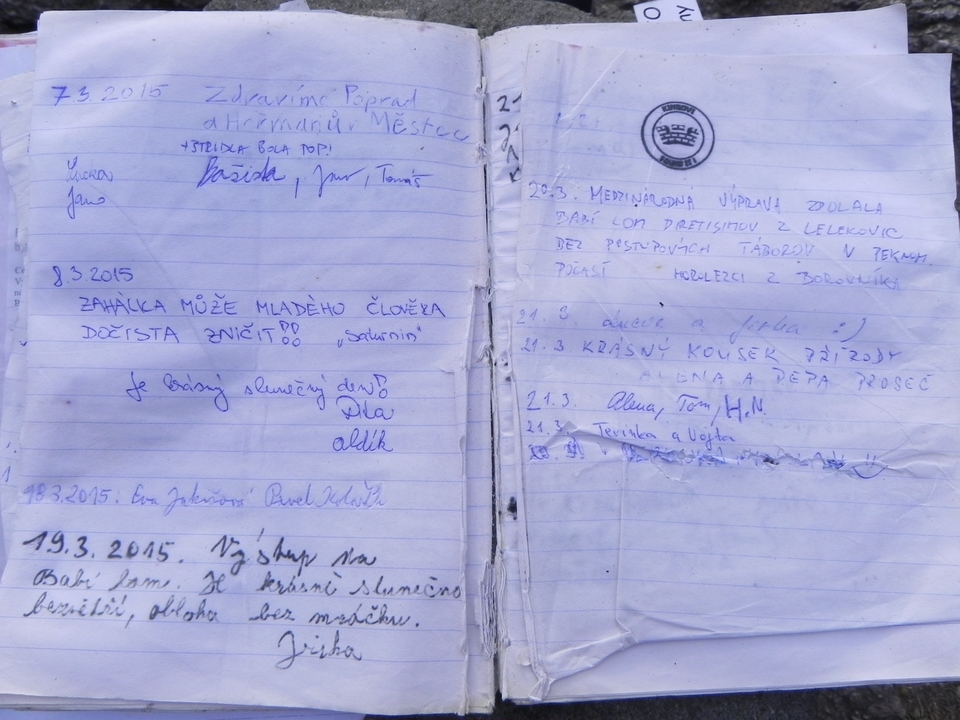 7.3.2015 Zdravíme Poprad
a Heřmanův Městec
+STREDLA BOLA POP!
Jano
, Tomáš
8.3.2015
ZAHÁLKA MŮŽE MLADÉHO ČLOVĚKA
DOČISTA ZNIČIT!! „Saturnin"
Je krásný slunečný den!!
aldík
18.3.2015: Eva Pavel
19.3.2015. Výstup na
Babí lom. Je krásně slunečno
bezvětří, obloha bez mráčku.
Jirka
20.3. MEDZINÁRODNÁ VÝPRAVA ZDOLALA
BABÍ LOM DIRETISIMOU Z LELEKOVIC
BEZ POSTUPOVÝCH TÁBOROV V PEKNOM
POČASÍ HOROLEZCI Z BOROVNÍKA
21.3. a Jirka :)
21.3 KRÁSNÝ KOUSEK PŘÍRODY
ALENA A PEPA PROSEČ
21.3. Alena, Tom, H.N.
21.3. Terinka a Vojta